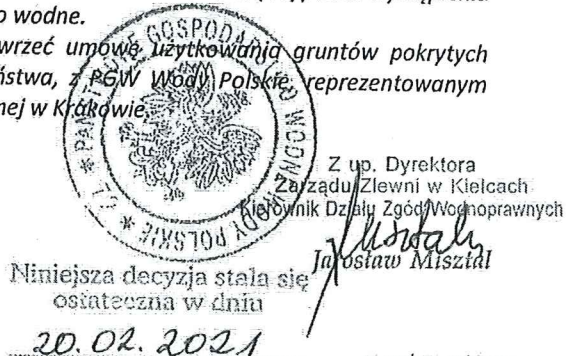 o wodne.
wrzeć umowę użytkowania gruntów pokrytych
ństwa, z PGW Wody Polskie reprezentowanym
nej w Krakowie
* PAŃSTWOWE GOSPODARSTWO WODNE WODY POLSKIE *
Z up. Dyrektora
Zarządu Zlewni w Kielcach
Kierownik Działu Zgód Wodnoprawnych
Jarosław Misztal
Niniejsza decyzja stała się
ostateczna w dniu
20.02.2021